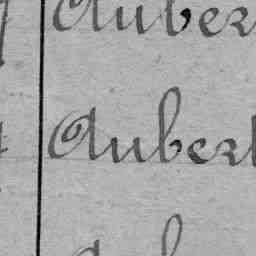 Auber
Aubert